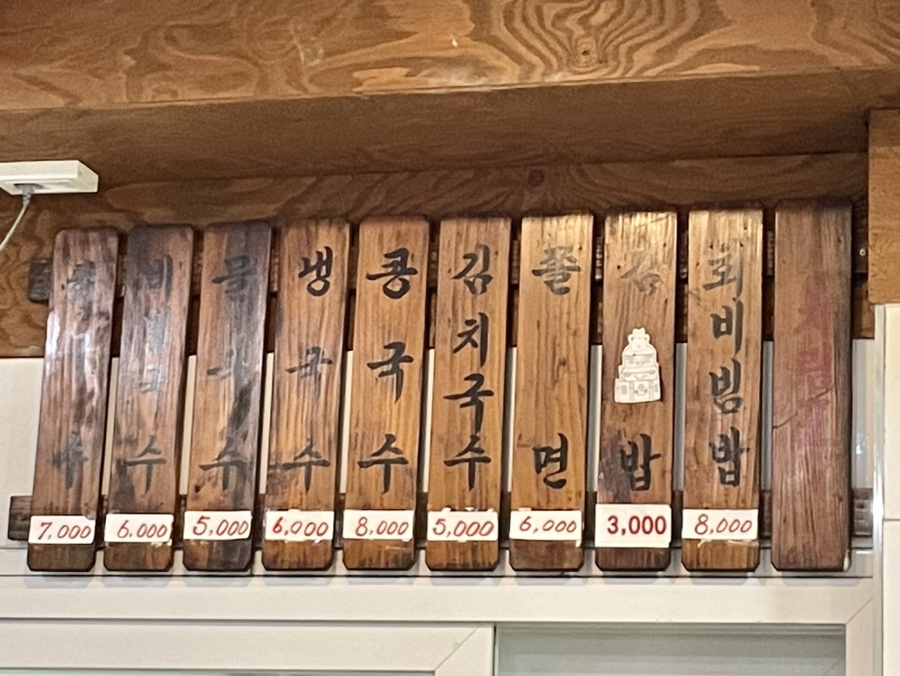 수
7,000
비빔국수
6,000
물국수
5,000
냉국수
6,000
콩국수
8,000
김치국수
5,000
쫄면
6,000
김밥
3,000
회비빔밥
8,000